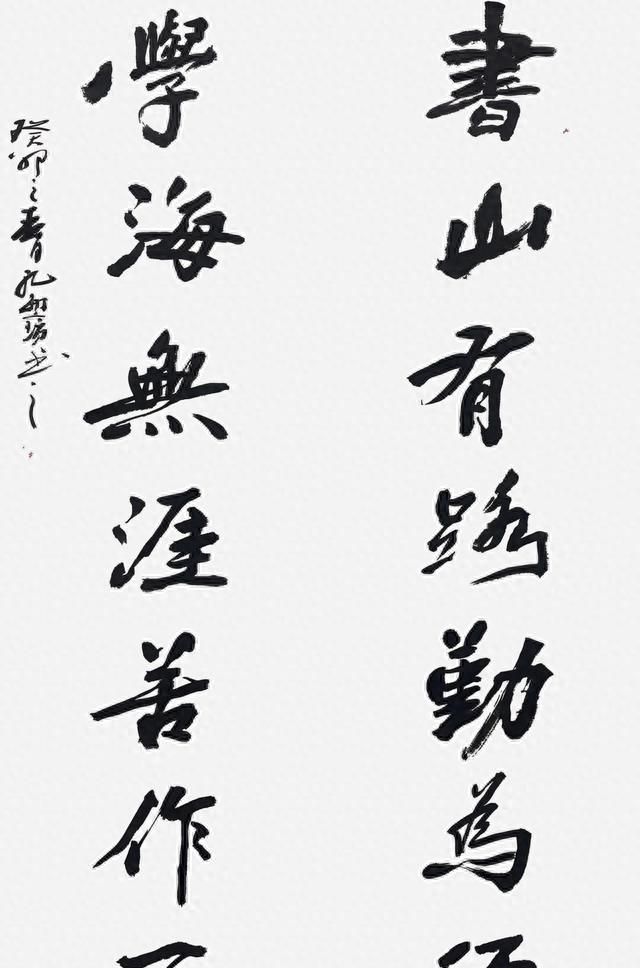 書山有路勤為
學海無涯善作
癸卯之春